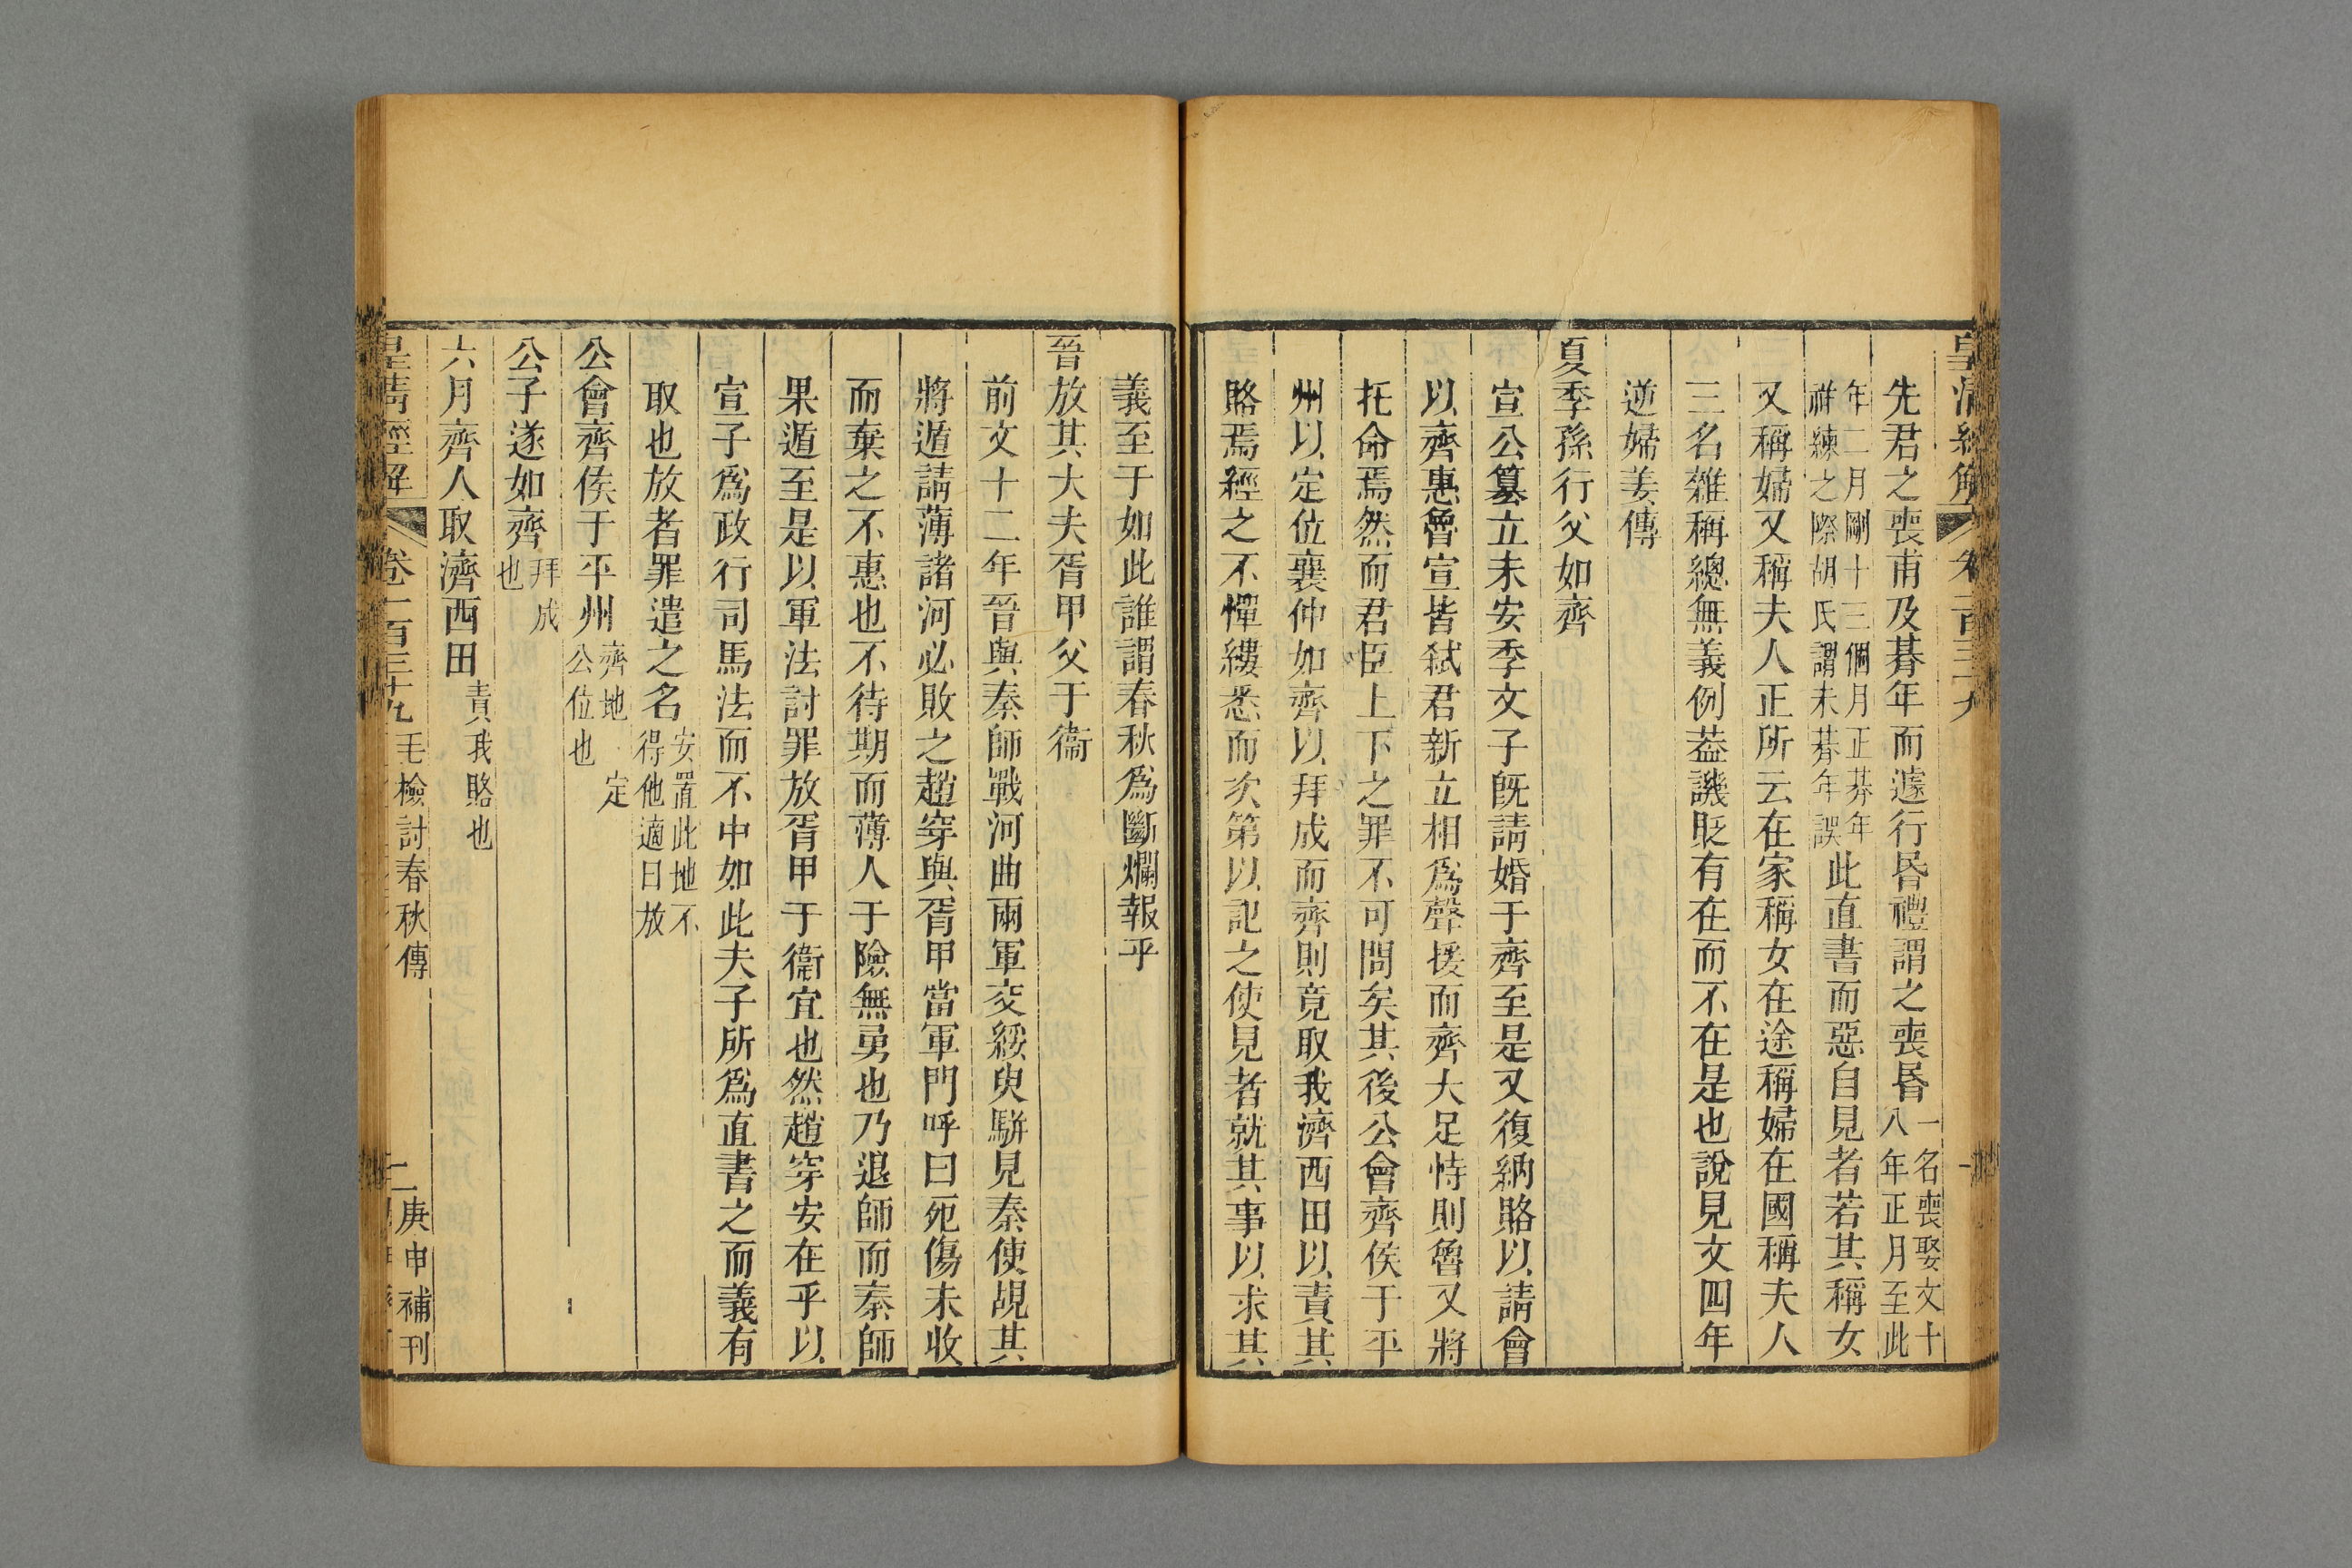 先君之喪甫及朞年而遽行昏禮謂之喪昏一名喪娶文十八年正月至此
年二月剛十三個月正朞年祥練之際胡氏謂未朞年誤此直書而惡自見者若其稱女
又稱婦又稱夫人正所云在家稱女在途稱婦在國稱夫人
三名雜稱總無義例葢譏貶有在而不在是也說見文四年
逆婦姜傳
夏季孫行父如齊
宣公簒立未安季文子旣請婚于齊至是又復納賂以請會
以齊惠魯宣皆弑君新立相爲聲援而齊大足恃則魯又將
托命焉然而君臣上下之罪不可問矣其後公會齊侯于平
州以定位襄仲如齊以拜成而齊則竟取我濟西田以責其
賂焉經之不憚縷悉而次第以記之使見者就其事以求其
義至于如此誰謂春秋爲斷爛報乎
晉放其大夫胥甲父于衞
前文十二年晉與秦師戰河曲兩軍交綏臾駢見秦使覘其
將遁請薄諸河必敗之趙穿與胥甲當軍門呼曰死傷未收
而棄之不惠也不待期而薄人于險無勇也乃退師而秦師
果遁至是以軍法討罪放胥甲于衞宜也然趙穿安在乎以
宣子爲政行司馬法而不中如此夫子所爲直書之而義有
取也放者罪遣之名安置此地不得他適曰放
公會齊侯于平州齊地定公位也
公子遂如齊拜成也
六月齊人取濟西田責我賂也
皇淸經解 卷一百三十九 毛檢討春秋傳 二 庚申補刊